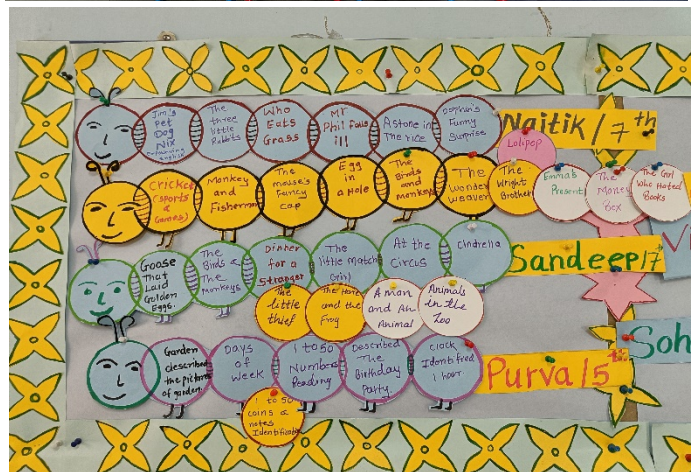 Jim's
Pet
Dog
Nix
The
three
little
Rabbits
Who
Eats
Grass
Mr
Phil falls
ill
A stone in
The rice
Funny
Surprise
Naitik / 7th
Lolipop
Cricket
(sports &
Games)
Monkey
and
Fisherman
The
mouse's
Fancy
cap
Egg
in
a Hole
The Birds
and
monkeys
The
Wonder
weaver
The
Wright
Brother
Emma's
Present
The
Money
Box
The Girl
Who Hated
Books
Goose
That
Laid
Golden
Eggs.
The
Birds &
The
Monkeys
Dinner
for a
Stranger
The
little Match
Girl
At the
Circus
Cindrella
Sandeep 17
The
little
thief
The Hare
and the
Frog
A man
and An
Animal
Animals
in the
Zoo
Garden
described
the picture
of garden.
Days
of
Week
1 to 50
Number
Reading
Described
The
Birthday
Party
Clock
Identified
1 hour.
Purva / 5th
Soh
1 to 50
coins &
notes
Identificati